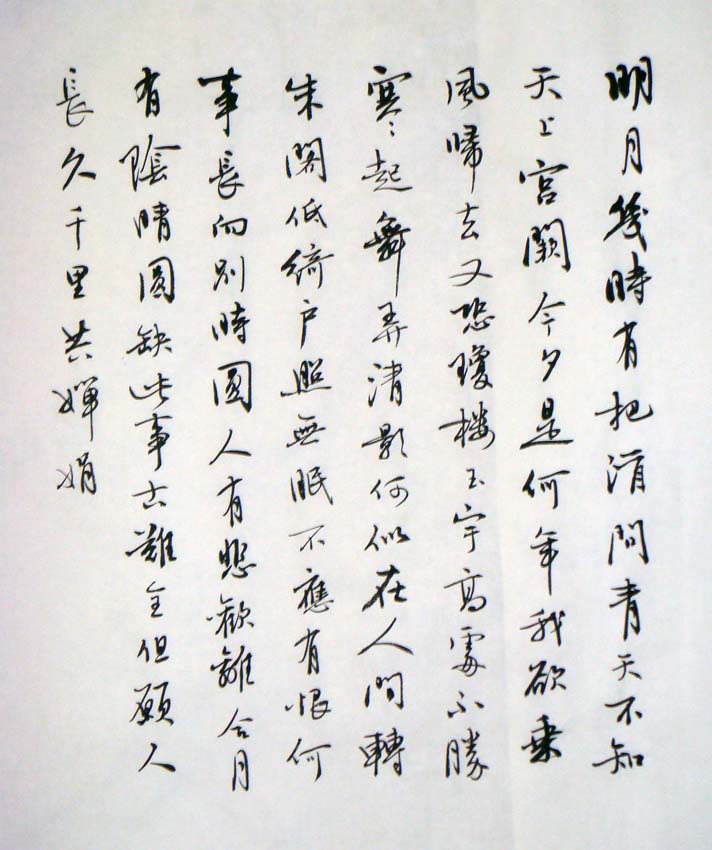 明月幾時有把酒問青天不知
天上宮闕今夕是何年我欲乗
風帰去又恐瓊樓玉宇高處不勝
寒々起舞弄清影何似在人間轉
朱閣低綺户照無眠不應有恨何
事長向別時圓人有悲歡離合月
有陰晴圓缺此事古難全但願人
長久千里共嬋娟